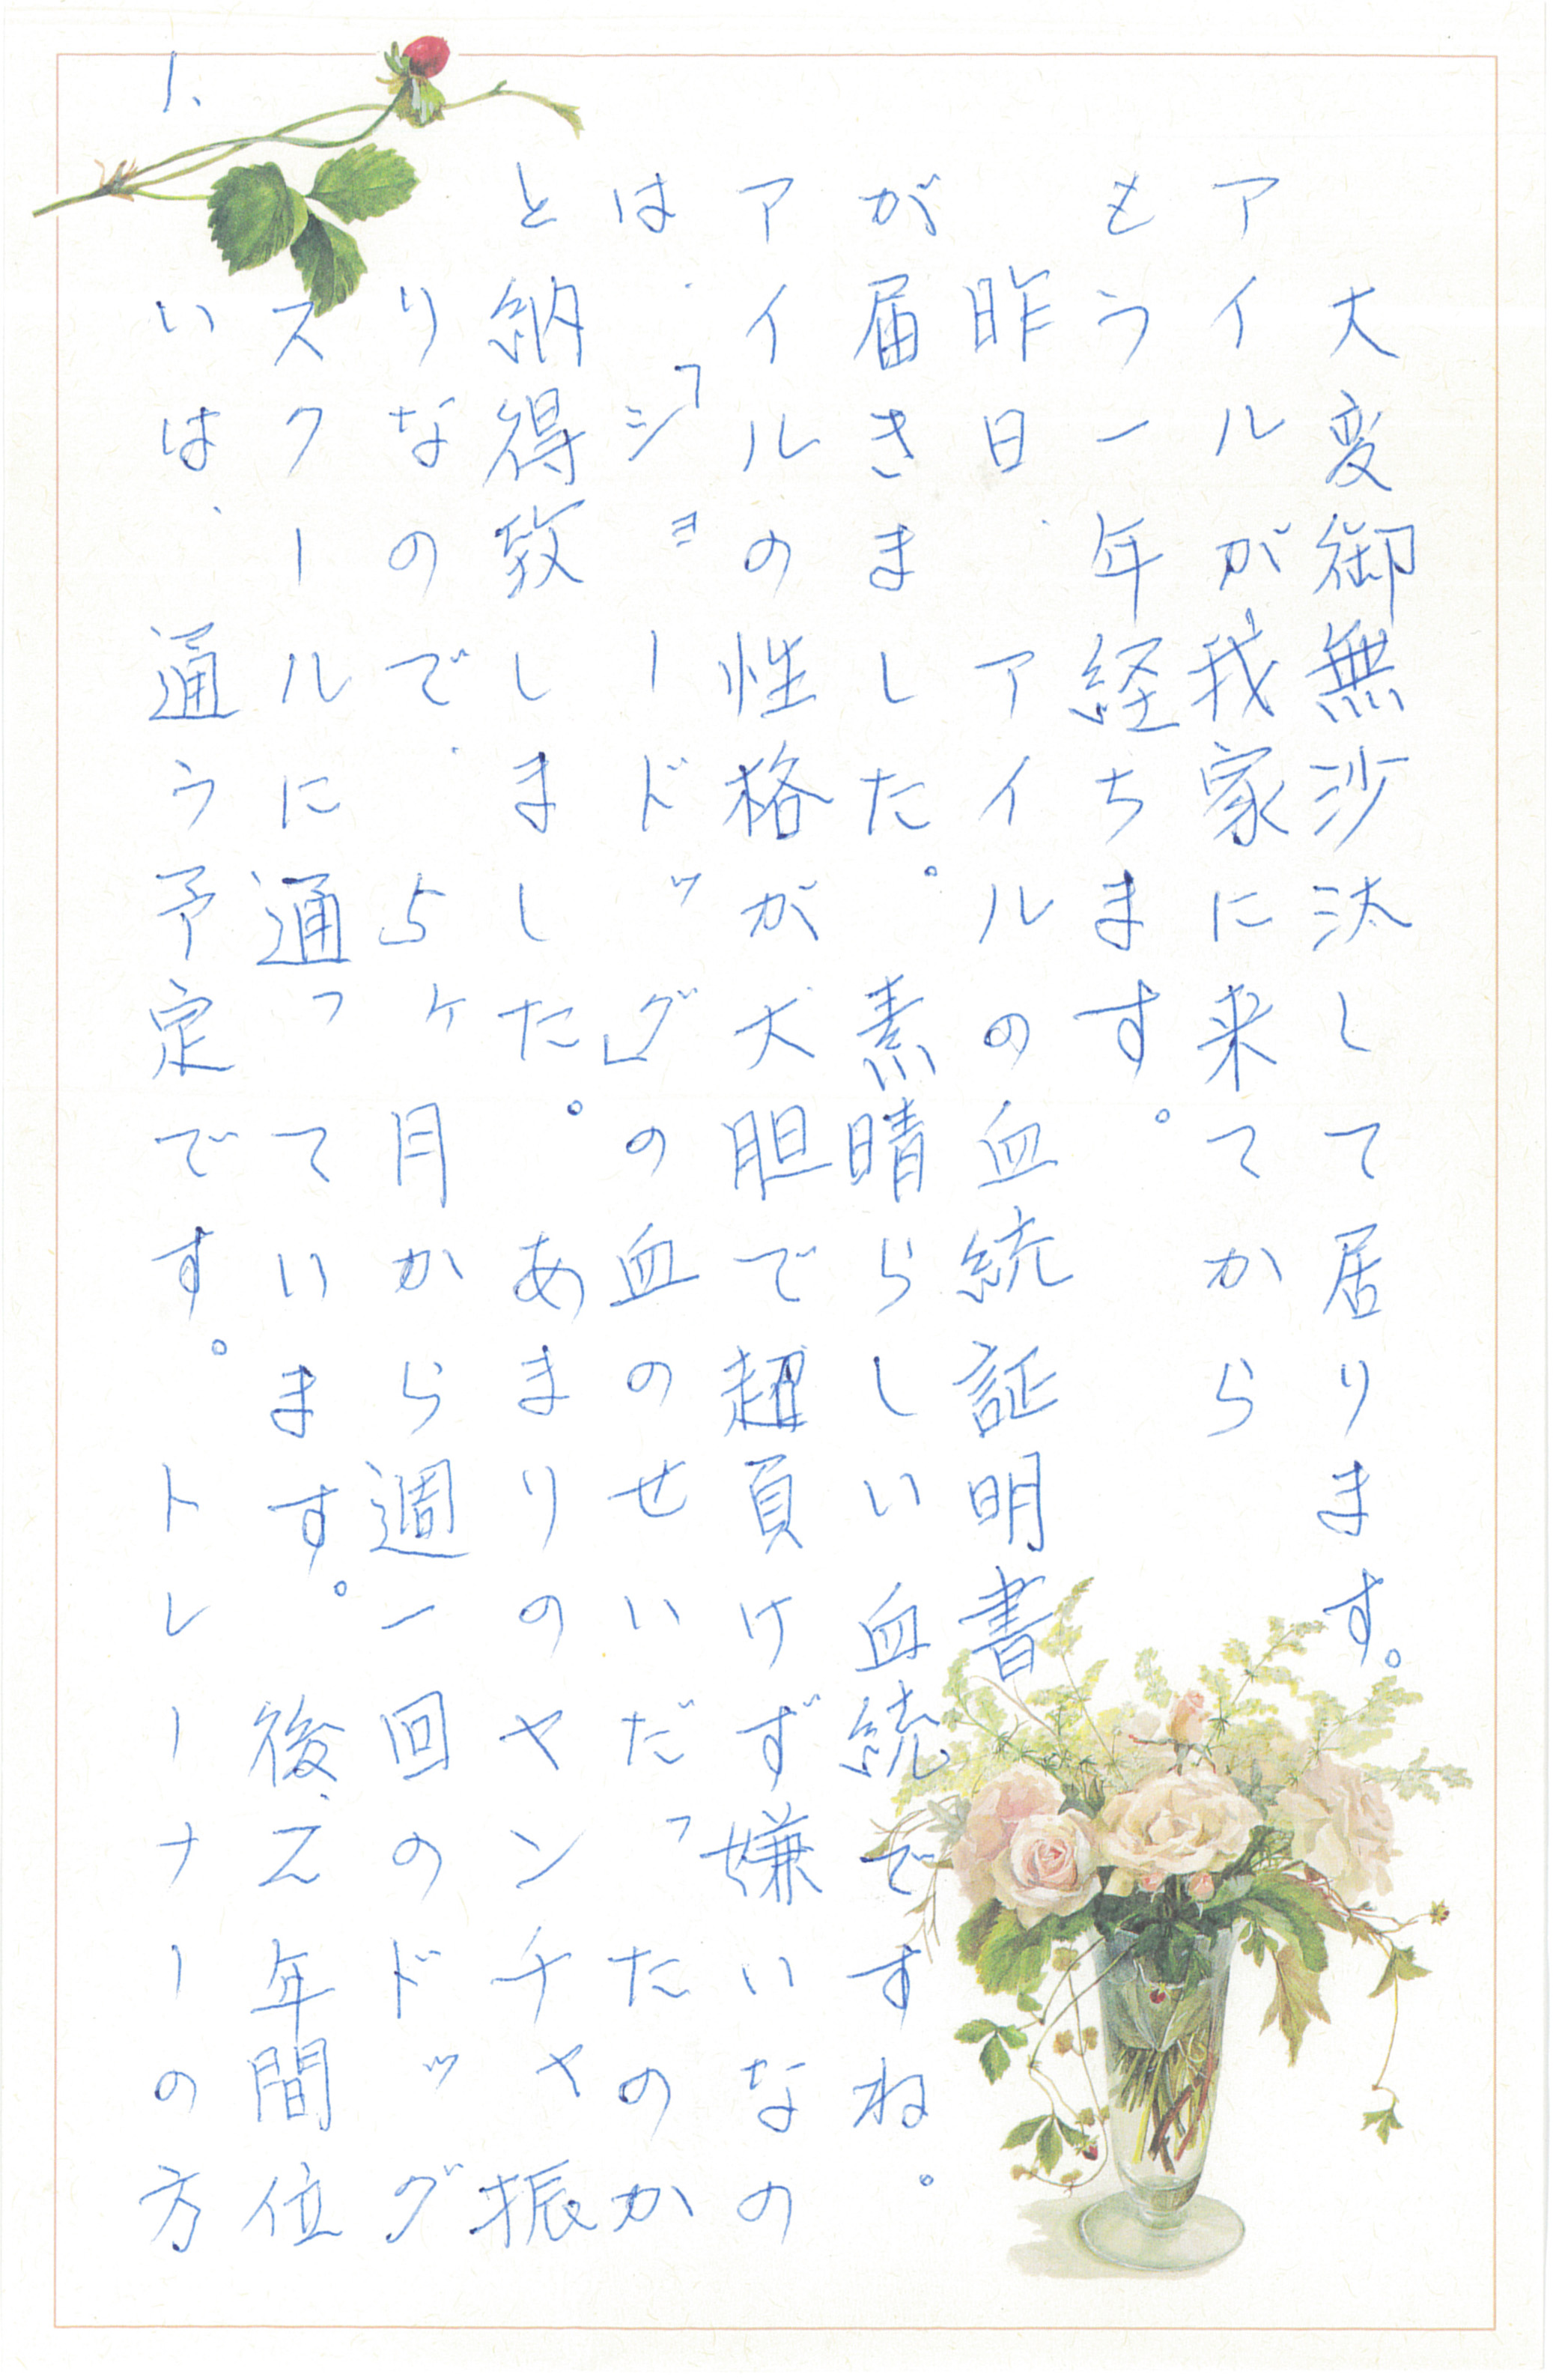 1.
大変御無沙汰して居ります。
アイルが我家に来てから
もう一年経ちます。
昨日、アイルの血統証明書
が届きました。素晴らしい血統ですね。
アイルの性格が大胆で超負けず嫌いなの
は、「ショードッグ」の血のせいだったのか
と納得致しました。あまりのヤンチャ振
りなので、5ヶ月から週一回のドッグ
スクールに通っています。後、2年間位
いは、通う予定です。トレーナーの方